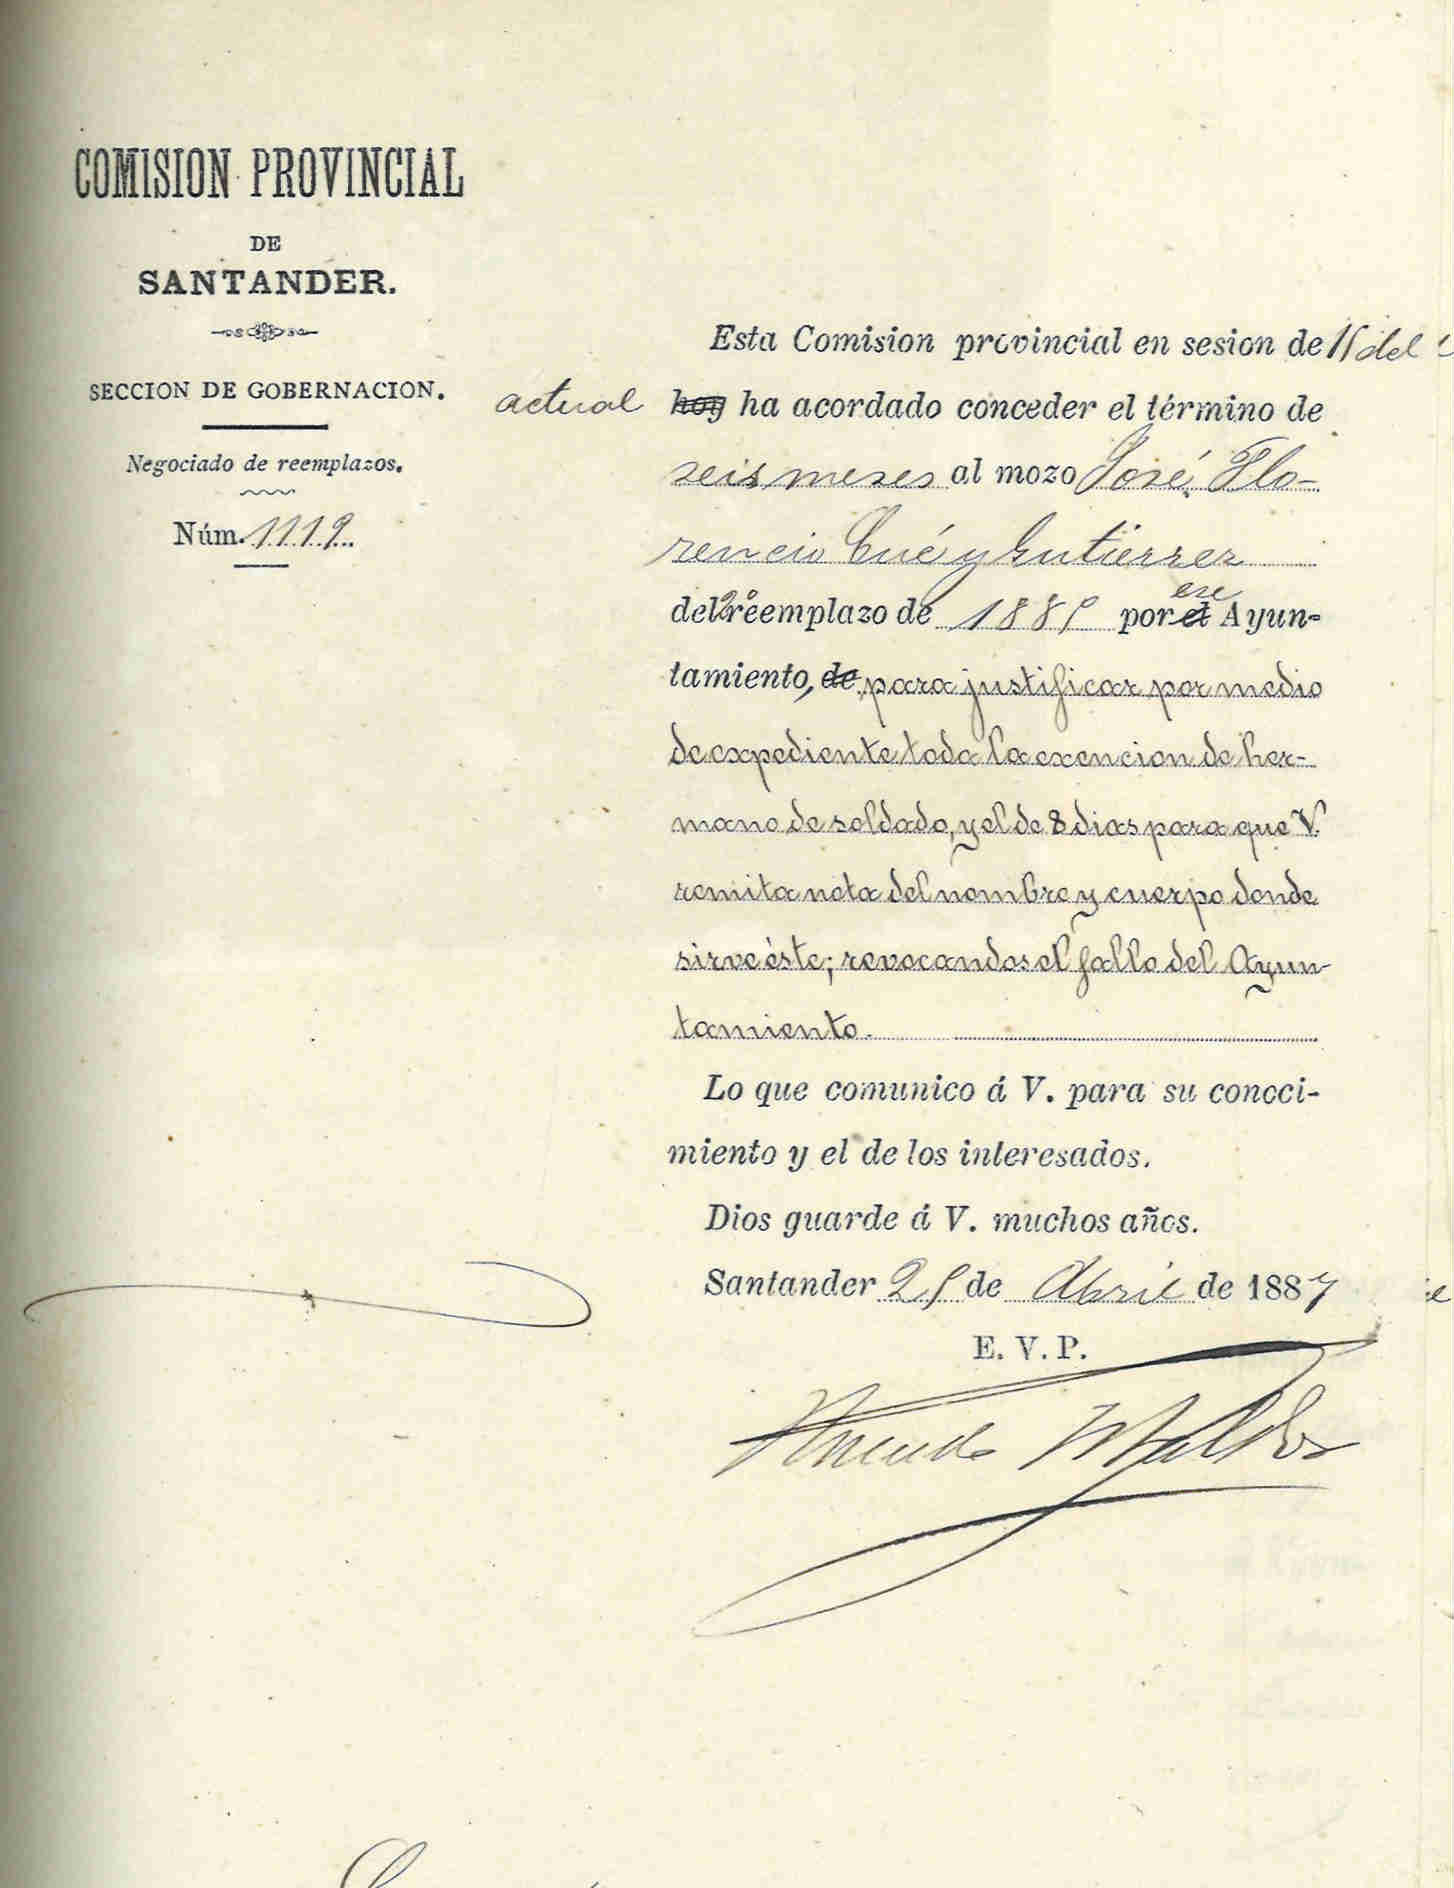 COMISION PROVINCIAL
DE
SANTANDER.
SECCION DE GOBERNACION.
Negociado de reemplazos.
Núm. 1119
Esta Comision provincial en sesion de 15 del
actual hoy ha acordado conceder el término de
seis meses al mozo José Flo-
rencio Cué y Gutiérrez
del 2º reemplazo de 1885 por el ese Ayun-
tamiento, de para justificar por medio
de expediente toda la exencion de her-
mano de soldado, y el de 8 dias para que V.
remita nota del nombre y cuerpo donde
sirve éste; revocandose el fallo del Ayun-
tamiento.
Lo que comunico á V. para su conoci-
miento y el de los interesados.
Dios guarde á V. muchos años.
Santander 25 de Abril de 1887
E. V. P.